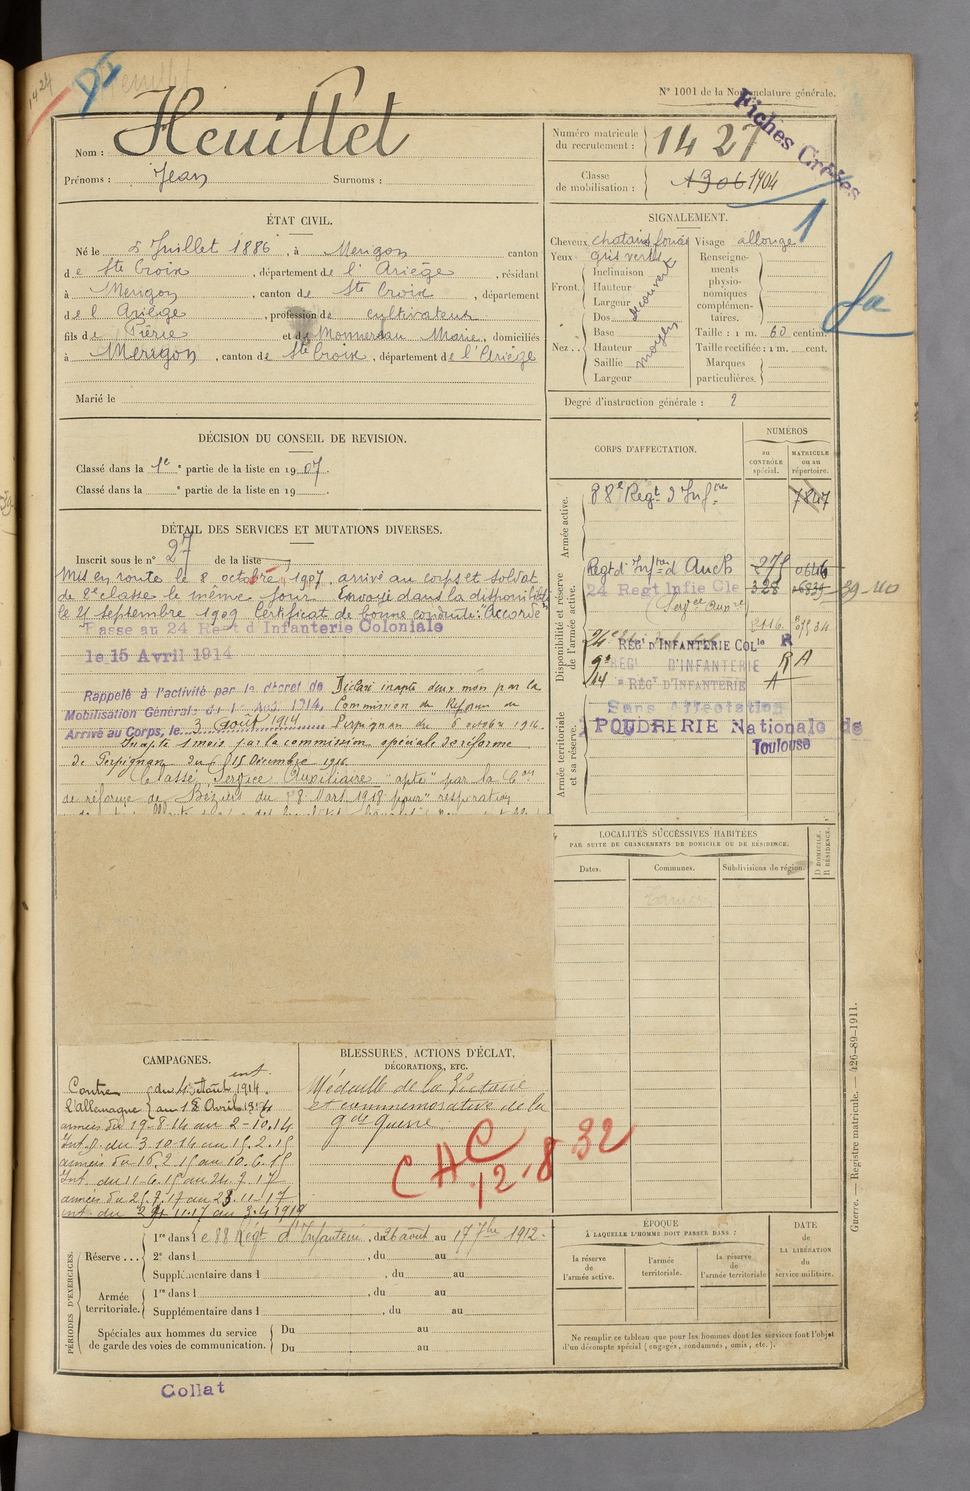 N° 1001 de la Nomenclature générale.
Fiches Créées
Nom : Heuillet
Prénoms : Jean Surnoms :
Numéro matricule du recrutement : 1427
Classe de mobilisation : 1906 1904
1
ÉTAT CIVIL.
Né le 5 Juillet 1886, à Merigon canton
de Ste Croix, département de l'Ariège, résidant
à Merigon, canton de Ste Croix, département
de l'Ariège, profession de cultivateur
fils de Pierre et de Monnereau Marie, domiciliés
à Merigon, canton de Ste Croix, département de l'Ariège
Marié le
SIGNALEMENT.
Cheveux chatains foncés Visage allongé
Yeux gris verts
Front. Inclinaison
Hauteur
Largeur
découvert
Nez .. Dos
Base
Hauteur
Saillie
Largeur
moyen
Renseignements physionomiques complémentaires.
Taille : 1 m. 60 centim.
Taille rectifiée : 1 m. cent.
Marques particulières.
Degré d'instruction générale : 2
DÉCISION DU CONSEIL DE REVISION.
Classé dans la 1e partie de la liste en 1907.
Classé dans la ° partie de la liste en 19 .
DÉTAIL DES SERVICES ET MUTATIONS DIVERSES.
Inscrit sous le n° 27 de la liste
Mis en route le 8 octobre 1907. arrivé au corps et soldat
de 2e classe le même jour. Envoyé dans la disponibilité
le 21 septembre 1909 Certificat de bonne conduite: "Accordé"
Passe au 24 Regt d'Infanterie Coloniale
le 15 Avril 1914
Rappelé à l'activité par le décret de
Mobilisation Générale du 1er Aoû 1914,
Arrivé au Corps, le 3 Août 1914
Déclaré inapte deux mois par la
Commission de Réforme de
Perpignan du 6 octobre 1916.
Inapte 1 mois par la commission spéciale de réforme
de Perpignan du 15 Décembre 1916
Classé Service Auxiliaire "apte" par la Con
de réforme de Béziers du 8 Mars 1918 pour "respiration
CORPS D'AFFECTATION.
NUMÉROS
AU CONTRÔLE spécial.
MATRICULE ou au répertoire.
Armée active.
88e Regt d'Infrie 7847
Disponibilité et réserve de l'armée active.
Regt d'Infrie d'Auch
24 Regt Infie Cle 328
24e REGt D'INFANTERIE COLle R
REGt D'INFANTERIE R A
REGt D'INFANTERIE A
Armée territoriale et sa réserve.
Sans affectation
POUDRERIE Nationale de
Toulouse
LOCALITÉS SUCCESSIVES HABITÉES
PAR SUITE DE CHANGEMENTS DE DOMICILE OU DE RÉSIDENCE.
D DOMICILE.
R RÉSIDENCE.
Dates. Communes. Subdivisions de région.
CAMPAGNES.
Contre du 4 Août 1914.
l'allemagne au
armées du 19-8-14 au 2-10.14
Int. du 3.10.14 au 15.2.15
armées du 16.2.15 au 10.6.15
Int. du 11.6.15 au 24.7.17
armées du 25.7.17 au 28.11.17
int. du 29.11.17 au 3.4.1919
BLESSURES, ACTIONS D'ÉCLAT,
DÉCORATIONS, ETC.
Médaille de la Victoire
et commemorative de la
gde guerre
CAC
12.8 32
PÉRIODES D'EXERCICES.
Réserve ... 1re dans le 88 Régt d'Infanterie, du 26 août au 17 7bre 1912.
2e dans l , du au
Supplémentaire dans l , du au
Armée territoriale. 1re dans l , du au
Supplémentaire dans l , du au
Spéciales aux hommes du service de garde des voies de communication. Du au
Du au
ÉPOQUE
À LAQUELLE L'HOMME DOIT PASSER DANS :
la réserve de l'armée active.
l'armée territoriale.
la réserve de l'armée territoriale
DATE de LA LIBÉRATION du service militaire.
Ne remplir ce tableau que pour les hommes dont les services font l'objet
d'un décompte spécial (engagés, condamnés, omis, etc.).
Guerre. — Registre matricule. — 426-89-1911.
Collat